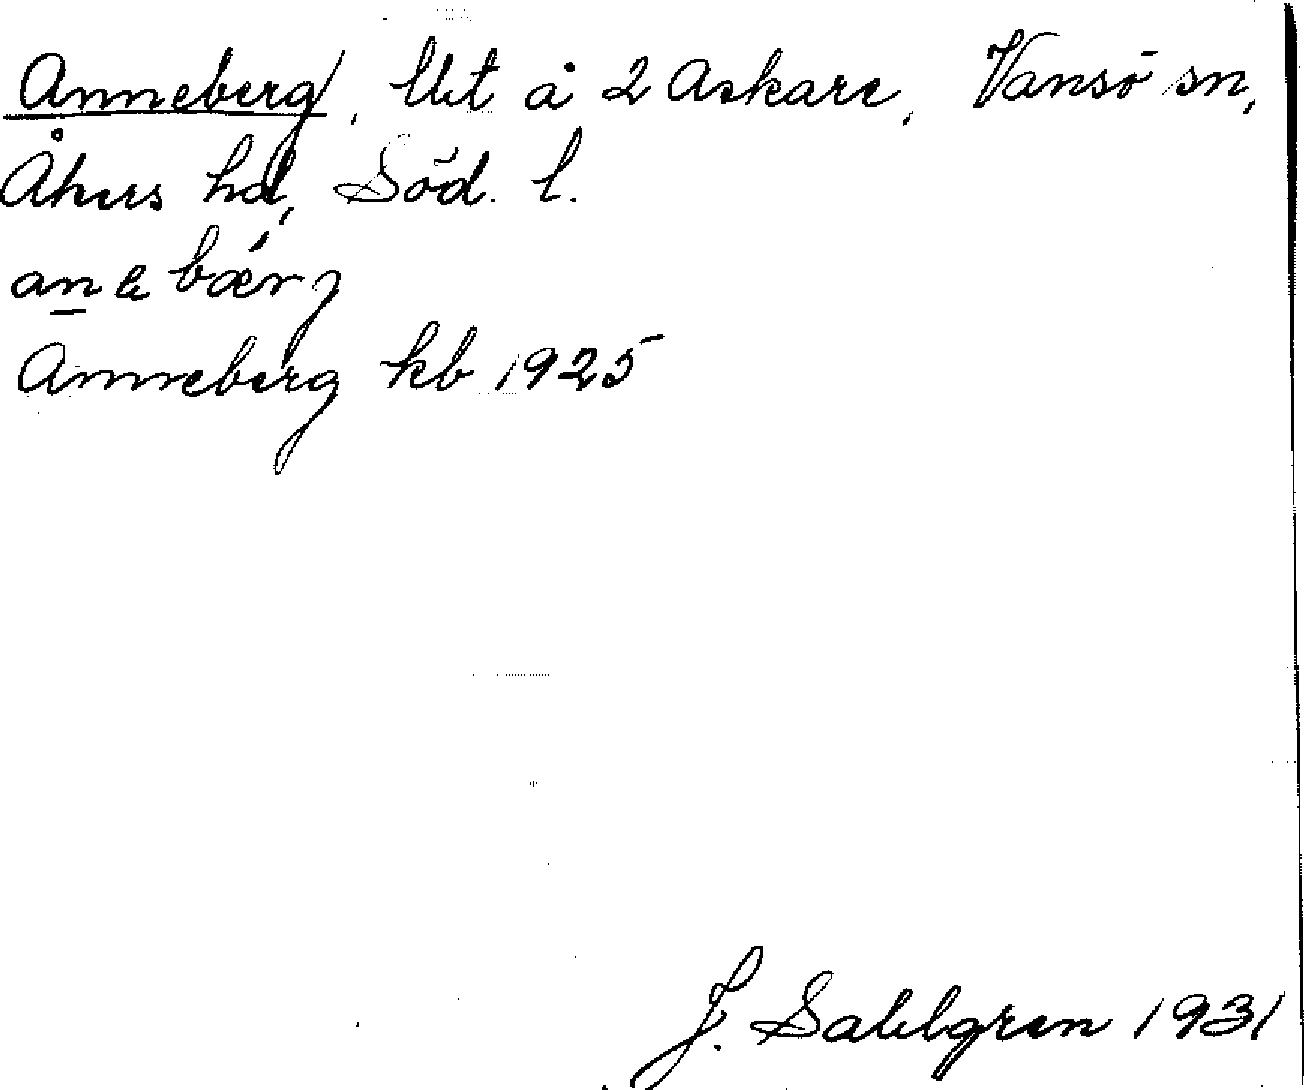 Anneberg, Ut å 2 Askare, Vansö sn,
Åkers hd, Söd. l.
anebærj
Anneberg kb 1925
J. Sahlgren 1931